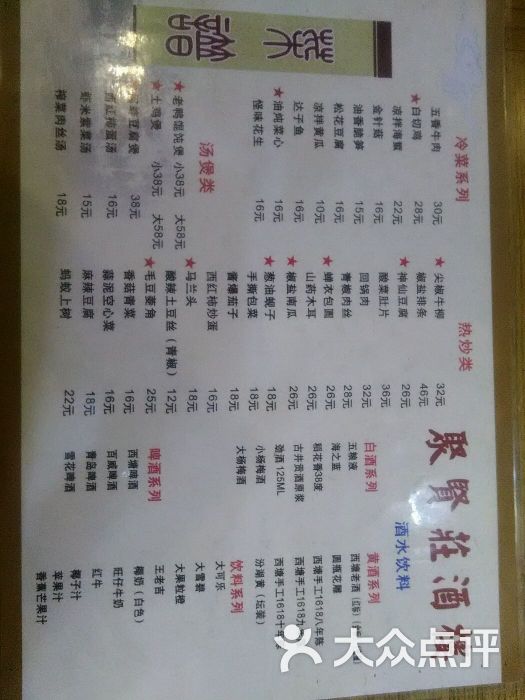 菜譜
聚賢莊酒楼
冷菜系列
五香牛肉 30元
★白切鸡 28元
凉拌海蜇 22元
金针菇 16元
油香脆笋 15元
松花豆腐 16元
凉拌黄瓜 10元
达子鱼 16元
★油炖菜心 28元
怪味花生 16元
汤煲类
★老鸭馄饨煲 小38元 大58元
★土鸡煲 小38元 大58元
豆腐煲 38元
蛋汤 16元
虾米紫菜汤 15元
榨菜肉丝汤 18元
热炒类
★尖椒牛柳 32元
椒盐排条 46元
★神仙豆腐 26元
酸菜肚片 36元
回锅肉 32元
青椒肉丝 28元
★蝉衣包圆 26元
山药木耳 26元
★椒盐南瓜 26元
★葱油蚬子 18元
手撕包菜 18元
酱爆茄子 18元
西红柿炒蛋 16元
★马兰头 18元
酸辣土豆丝（青椒） 12元
★毛豆菱角 25元
香菇青菜 16元
蒜泥空心菜 16元
麻辣豆腐 18元
蚂蚁上树 22元
酒水饮料
白酒系列
五粮液
海之蓝
稻花香38度
古井贡酒原浆
劲酒 125ML
小杨梅酒
大杨梅酒
啤酒系列
西塘啤酒
百威啤酒
青岛啤酒
雪花啤酒
黄酒系列
西塘老酒
圆瓶花雕
西塘手工1618八年陈
西塘手工1618九
西塘手工1618十年
汾湖黄（坛装）
饮料系列
大可乐
大雪碧
大果粒橙
王老吉
椰奶（白色）
旺仔牛奶
红牛
椰子汁
苹果汁
香蕉芒果汁
大众点评